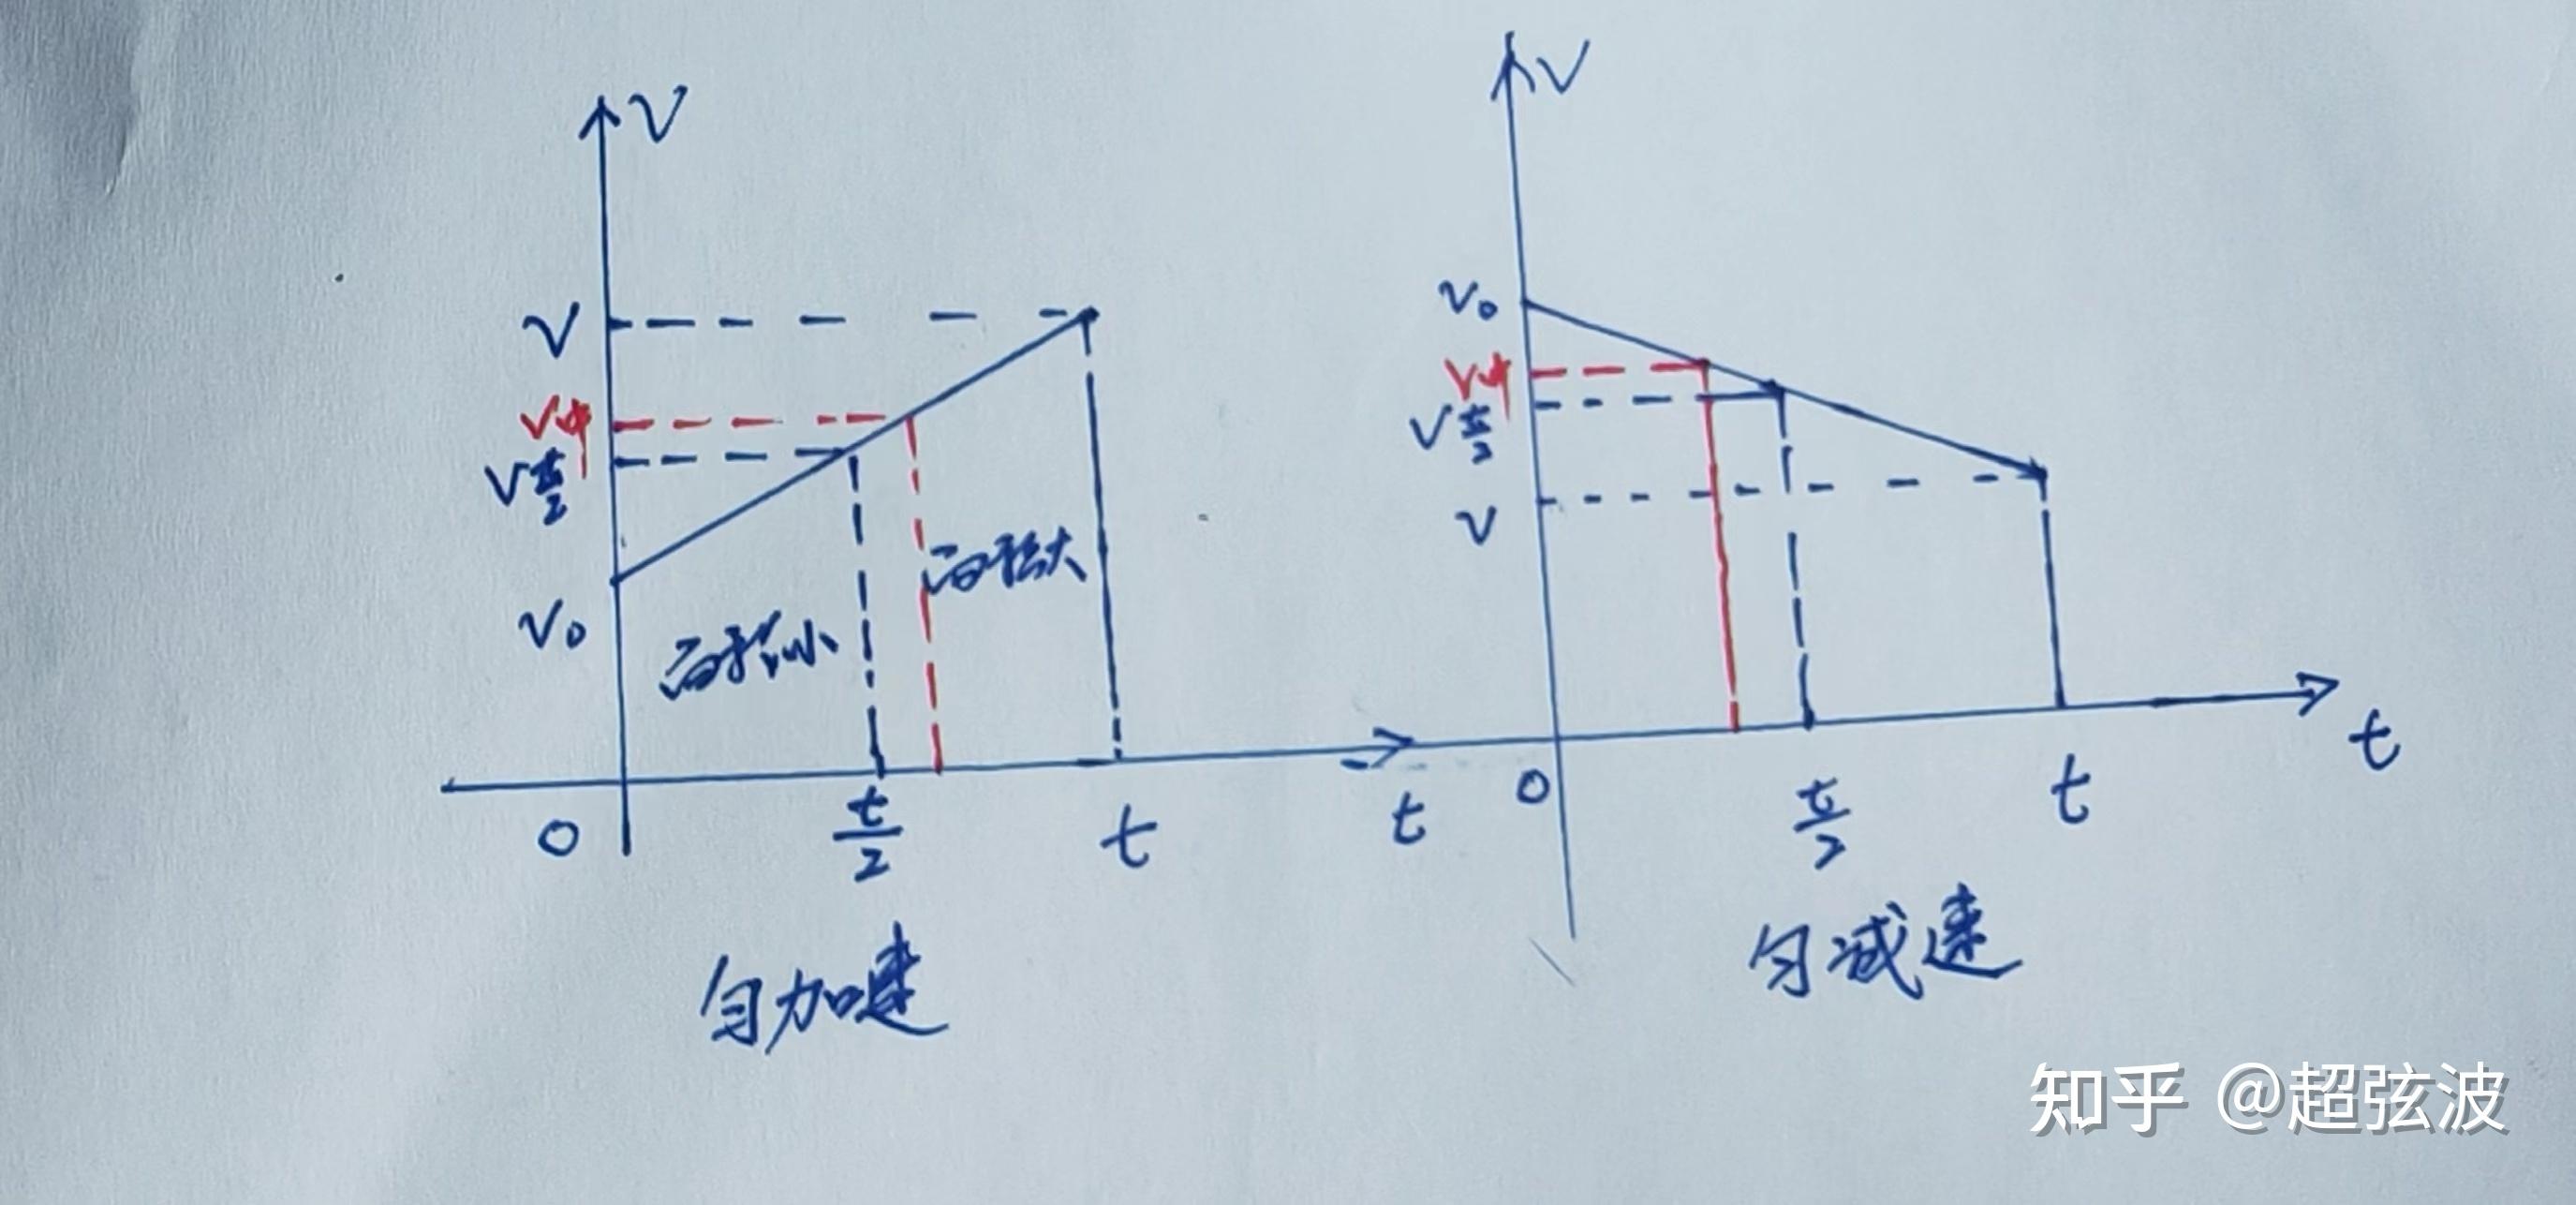 V
V
V中
V t/2
V₀
面积小
面积大
0
t/2
t
t
匀加速
V
V₀
V中
V t/2
V
0
t/2
t
t
匀减速
知乎 @超弦波